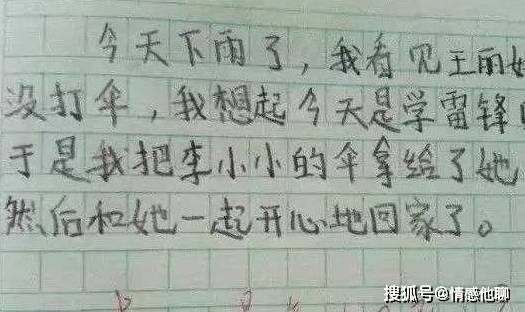 今天下雨了，我看见王丽
没打伞，我想起今天是学雷锋
于是我把李小小的伞拿给了她
然后和她一起开心地回家了。
搜狐号@情感他聊